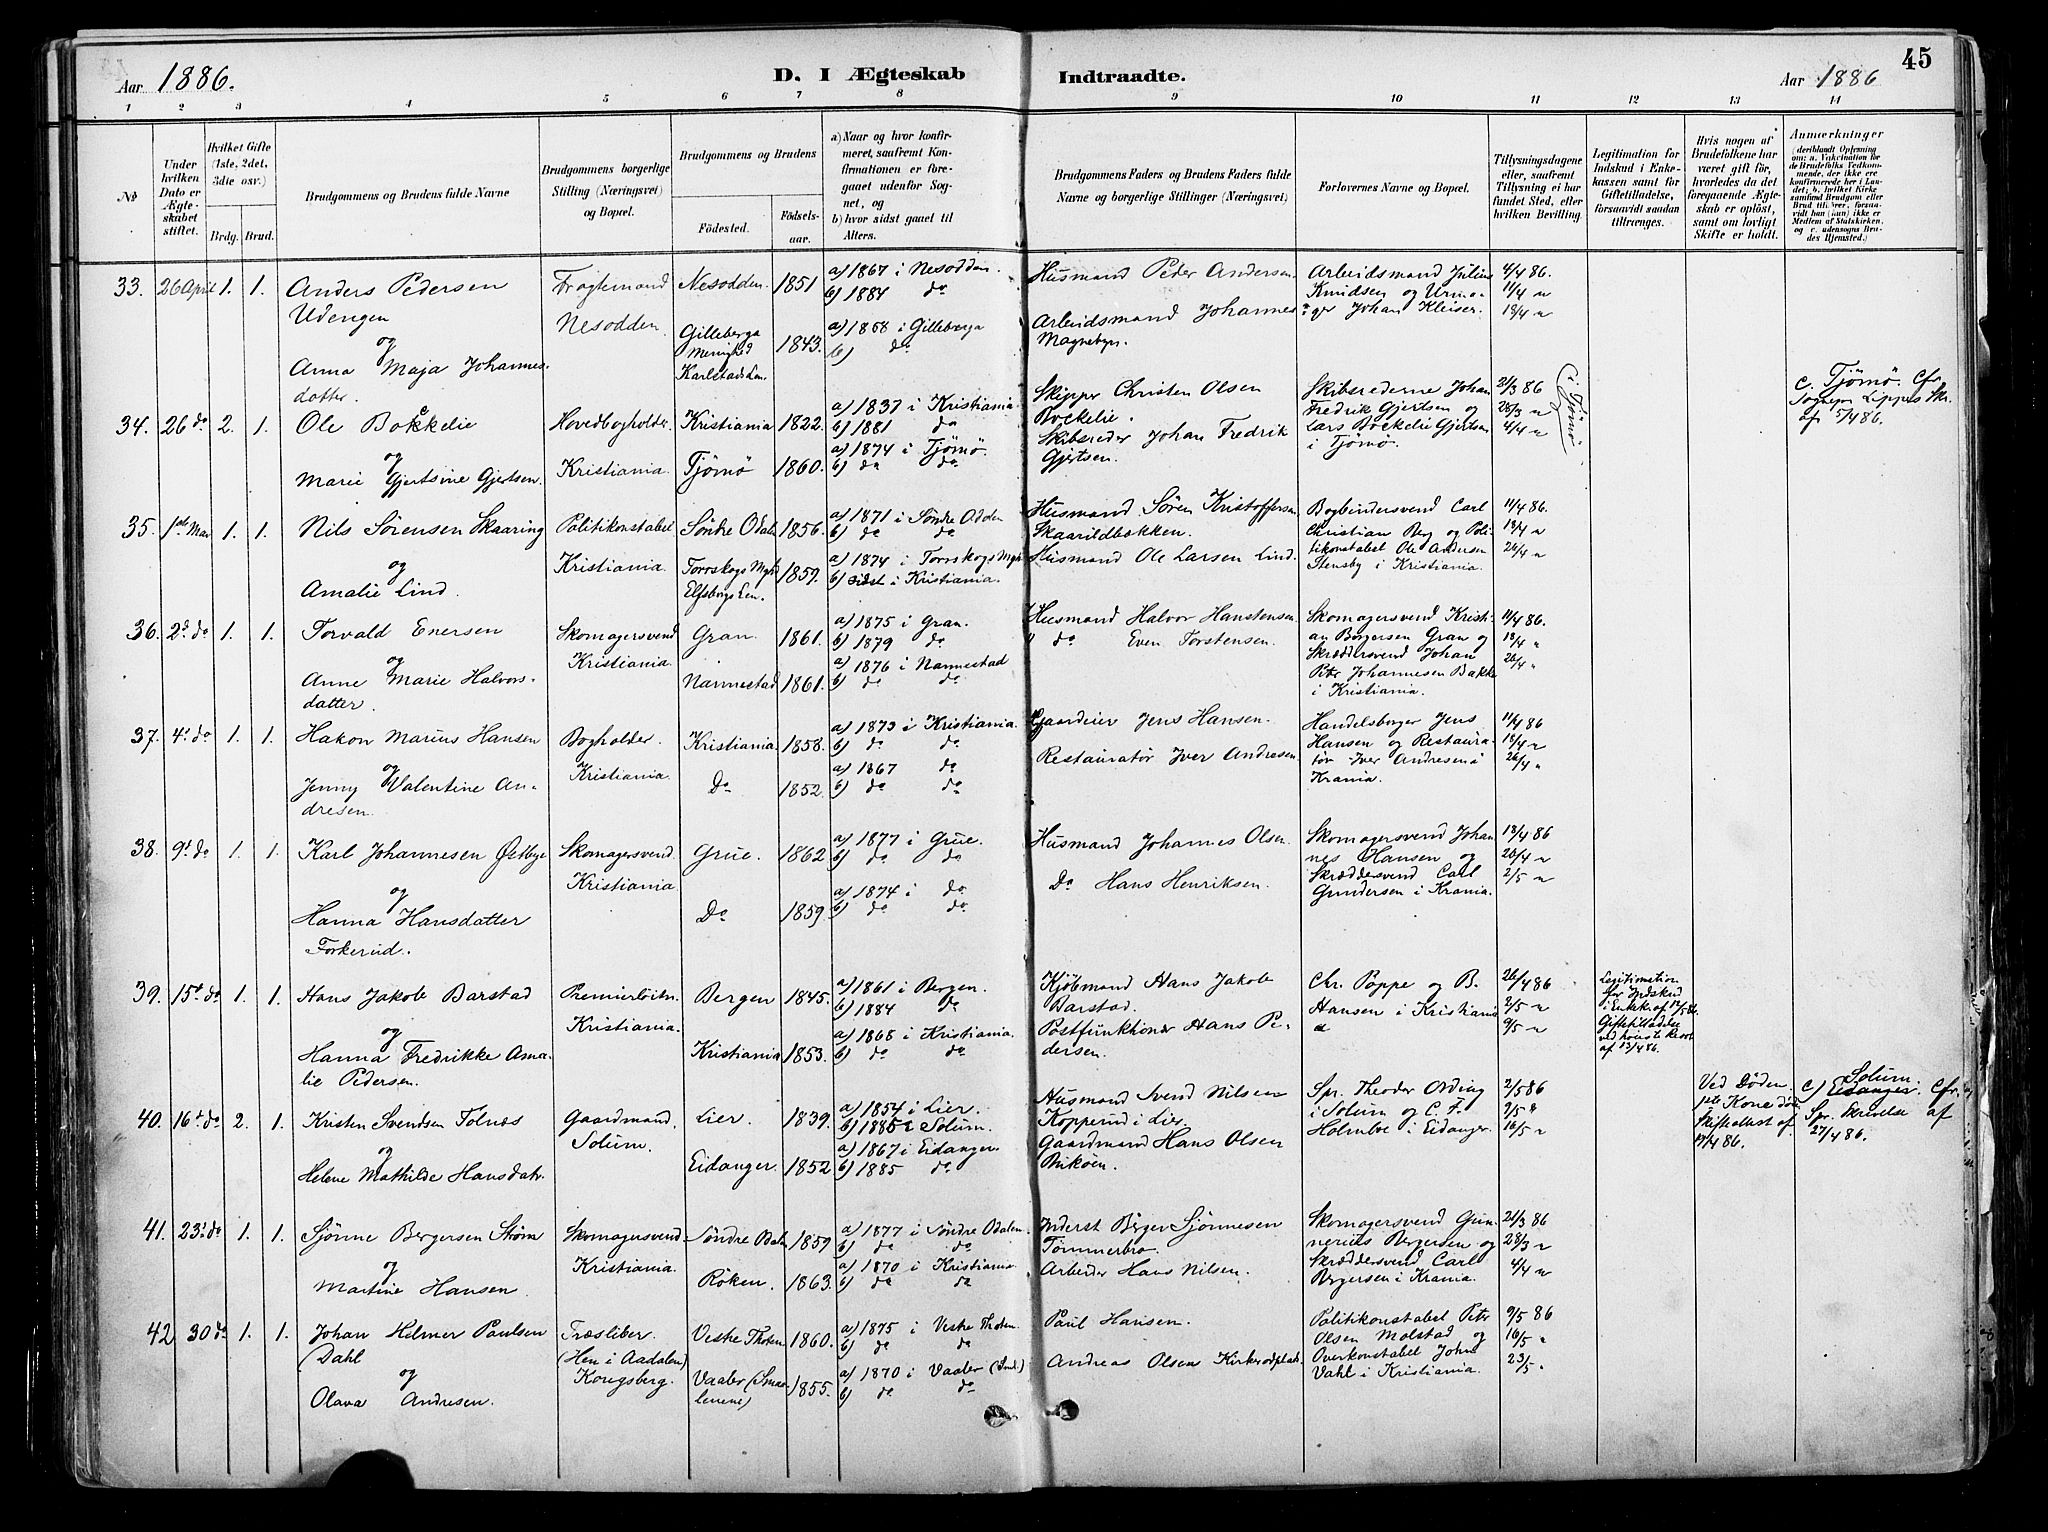 Aar 1886.
D. I Ægteskab Indtraadte.
45
Aar 1886
1 2 3 4 5 6 7 8 9 10 11 12 13 14
№
Under hvilken Dato er Ægteskabet stiftet.
Hvilket Gifte (1ste, 2det, 3die osv.)
Brdg. Brud.
Brudgommens og Brudens fulde Navne
Brudgommens borgerlige Stilling (Næringsvei) og Bopæl.
Brudgommens og Brudens
Födested.
Födselsaar.
a) Naar og hvor konfirmeret, saafremt Konfirmationen er foregaaet udenför Sognet, og
b) hvor sidst gaaet til Alters.
Brudgommens Faders og Brudens Faders fulde Navne og borgerlige Stillinger (Næringsvei)
Forlovernes Navne og Bopæl.
Tillysningsdagene eller, saafremt Tillysning ei har fundet Sted, efter hvilken Bevilling.
Legitimation for Indskud i Enkekassen samt for Giftetilladelse, forsaavidt saadan tiltrænges.
Hvis nogen af Brudefolkene har været gift för, hvorledes da det foregaaende Ægteskab er oplöst, samt om lovligt Skifte er holdt.
Anmærkninger
(deriblandt Oplysning om: a. Vakcination for de Brudefolks Vedkommende, der ikke ere konfirmerede her i Landet; b. hvilket Kirkesamfund Brudgom eller Brud tilhörer, forsaavidt han (hun) ikke er Medlem af Statskirken, og c. udensogns Brudes Hjemsted.)
33. 26 April 1. 1. Anders Pedersen Udengen
og
Anna Maja Johannesdotter.
Frogtemand Nesodden
Nesodden. 1851
Gilleberga Menighed Karlstads Len. 1843.
a) 1867 i Nesodden.
b) 1884 do
a) 1858 i Gilleberga
b) do
Husmand Peder Andersen
Arbeidsmand Johannes Magnebyn.
Arbeidsmand Julius Knudsen og Urmager Johan Kleiser.
4/4 86.
11/4 "
18/4 "
34. 26 do 2. 1. Ole Bokkelie
og
Marie Gjertsine Gjertsen.
Hovedbogholder.
Kristiania.
Kristiania 1822.
Tjömö 1860.
a) 1837 i Kristiania
b) 1881 do
a) 1874 i Tjömö.
b) do do
Skipper Christen Olsen Bockelie.
Skibsreder Johan Fredrik Gjertsen.
Skibsrederne Johan Fredrik Gjertsen og Lars Bockelie Gjertsen i Tjömö.
21/3 86
28/3 "
4/4 "
i Tjömö
c. Tjömö. Cfr. Sognepr. Lippes Skr. af 5/4 86.
35. 1ste Mai 1. 1. Nils Sörensen Skaaring
og
Amalie Lind.
Politikonstabel
Kristiania.
Söndre Odalen 1856.
Torrskogs Mgh. Elfsborgs Len. 1859.
a) 1871 i Söndre Odden
b) do do
a) 1874 i Torrskogs Mgh.
b) sidst i Kristiania.
Husmand Sören Kristoffersen Skaarildbakken.
Husmand Ole Larsen Lind.
Bogbindersvend Carl Christian Berg og Politikonstabel Ole Andersen Stensby i Kristiania.
11/4 86.
18/4 "
26/4 "
36. 2d do 1. 1. Torvald Enersen
og
Anne Marie Halvorsdatter.
Skomagersvend
Kristiania.
Gran. 1861.
Nannestad 1861.
a) 1875 i Gran.
b) 1879 do
a) 1876 i Nannestad
b) do do
Husmand Halvor Hanstensen
" do Even Torstensen.
Skomagersvend Kristian Börgersen Gran og Skræddersvend Johan Peter Johannesen Bakke i Kristiania.
11/4 86.
18/4 "
26/4 "
37. 4d do 1. 1. Hakon Marius Hansen
og
Jenny Valentine Andresen.
Bogholder.
Kristiania.
Kristiania. 1858.
Do 1852.
a) 1873 i Kristiania.
b) do do
a) 1867 do
b) do do
Gaardeier Jens Hansen.
Restauratør Iver Andresen
Handelsborger Jens Hansen og Restauratør Iver Andresen i Krania.
11/4 86
18/4 "
26/4 "
38. 9d do 1. 1. Karl Johannesen Østbye
og
Hanna Hansdatter Forkerud.
Skomagersvend.
Kristiania
Grue. 1862
Do 1859.
a) 1877 i Grue.
b) do do
a) 1874 i do
b) do do
Husmand Johannes Olsen.
Do Hans Henriksen.
Skomagersvend Johannes Hansen og Skræddersvend Carl Gundersen i Krania.
18/4 86
26/4 "
2/5 "
39. 15d do 1. 1. Hans Jakob Barstad
og
Hanna Fredrikke Amalie Pedersen.
Premierløitn.
Kristiania.
Bergen 1845.
Kristiania 1853.
a) 1861 i Bergen.
b) 1884 do
a) 1865 i Kristiania.
b) do do
Kjöbmand Hans Jakob Barstad.
Postfunktionær Hans Pedersen.
Chr. Poppe og B. Hansen i Kristiania
26/4 86
2/5 "
9/5 "
Legitimation for Indskud i Enkek. af 12/5 86. Giftetilladelse ved höieste Resol. af 13/4 86.
40. 16d do 2. 1. Kristen Svendsen Tolnæs
og
Helene Mathilde Hansdatr.
Gaardmand.
Solum.
Lier. 1839.
Eidanger. 1852
a) 1854 i Lier.
b) 1885 i Solum.
a) 1867 i Eidanger.
b) 1885 do
Husmand Svend Nilsen Kopperud i Lier.
Gaardmand Hans Olsen Brikøen.
Spr. Theodor Ording i Solum og C. F. Holmboe i Eidanger.
2/5 86
9/5 "
16/5 "
Ved Döden Skifteattest af 17/4 86.
c) Solum. Eidanger. Cfr. Spr. Skrivelse af 27/4 86.
41. 23d do 1. 1. Sjönne Bergersen Ström
og
Martine Hansen.
Skomagersvend.
Kristiania.
Söndre Odal 1859
Röken. 1863.
a) 1877 i Söndre Odalen.
b) do do
a) 1870 i Kristiania.
b) do do
Inderst Börger Sjönnesen Tömmerbro.
Arbeider Hans Nilsen.
Skomagersvend Gunnerius Bergersen og Skræddersvend Carl Bergersen i Krania.
21/3 86
28/3 "
4/4 "
42 30 do 1. 1. Johan Helmer Paulsen (Dahl
og
Olava Andresen.
Træsliber.
(Hen i Aadalen)
Kongsberg.
Vestre Thoten 1860.
Vaaler (Smaalenene) 1855.
a) 1875 i Vestre Thoten.
b) do do
a) 1870 i Vaaler (Sml.)
b) do do
Paul Hansen.
Andreas Olsen Kirkerødplads.
Politikonstabel Peter Olsen Molstad og Overkonstabel John Vahl i Kristiania.
9/5 86
16/5 "
23/5 "